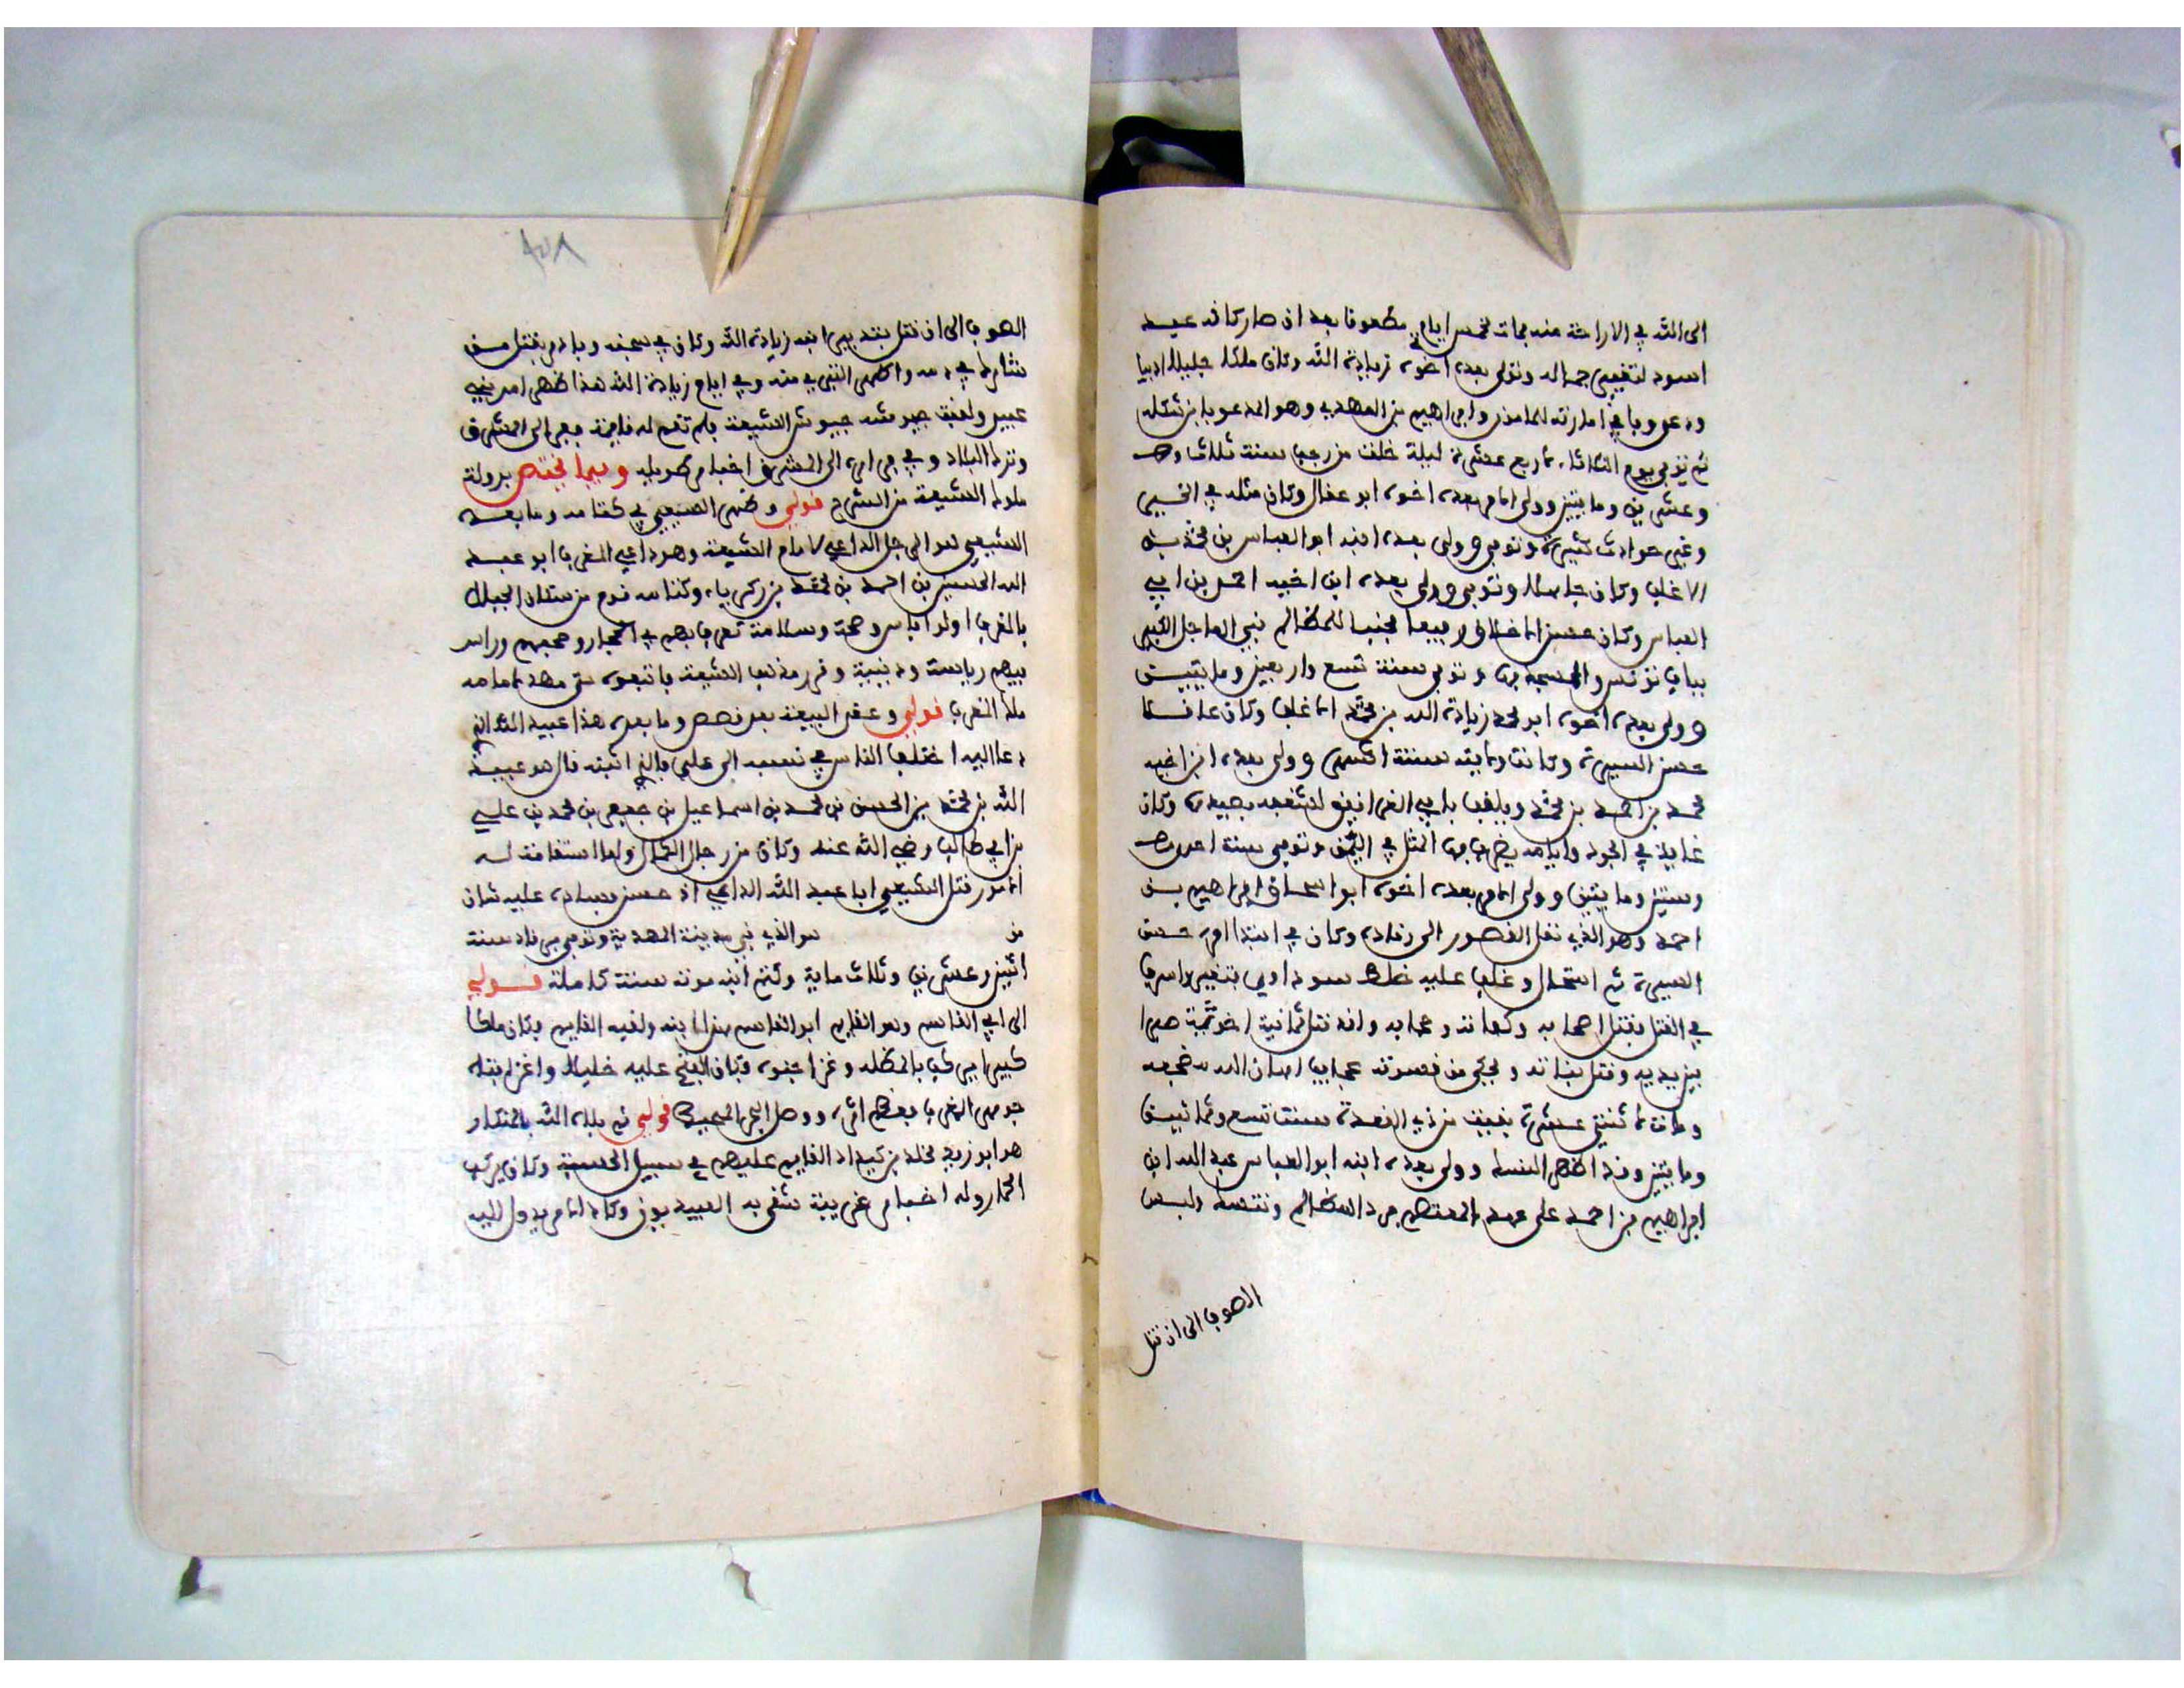 الى الله في الاراحة منه فمات لخمس ايام مطعونا بعد ان صار كانه عبد
اسود لتغيير جماله وتولى بعده اخوه زيادة الله وكان ملكا جليلا اديبا
ودعي وباع امارته للمامون وابراهيم بن المهدي وهو المدعو بابن شكله
ثم توفي يوم الثلاثاء لاربع عشرة ليلة خلت من رجب سنة ثلاث
وعشرين ومايتين وولى الامر بعده اخوه ابو عقال وكان مثله في الخير
وغير حوادث كثيرة وتوفي وولى بعده ابنه ابو العباس بن محمد بن
الاغلب وكان جاهلا وتوفي وولى بعده ابن اخيه احمد بن ابي
العباس وكان حسن الاخلاق رفيعا مجنبا للمظالم بنى الماجل الكبير
بباب تونس والمسجد بها وتوفي سنة تسع واربعين ومايتين
وولى بعده اخوه ابو محمد زيادة الله بن محمد الاغلب وكان عاقلا
حسن السيرة وكانت ولايته سنة اشهر وولى بعده ابن اخيه
محمد بن احمد بن محمد ويلقب بابي الغرانيق لشغفه بصيدها وكان
غاية في الجود وايامه يضرب بها المثل في اليمن وتوفي سنة احدى
وستين ومايتين وولى الامر بعده اخوه ابو اسحاق ابراهيم بن
احمد وهو الذي نقل القصور الى رقادة وكان في ابتدا امره حسن
السيرة ثم استحال وغلب عليه خلط سوداوي فتغير واسرف
في القتل فقتل اصحابه وكفاته وحجابه وانه قتل ثمانية اخوته صبرا
بين يديه وقتل بناته ويحكى من قسوته عجايب اصان الله
ومات لاثنتي عشرة بقيت من ذي القعدة سنة تسع وثمانين
ومايتين وقد اظهر النسك وولى بعده ابنه ابو العباس عبد الله ابن
ابراهيم بن احمد على عهد المعتضد فرد المظالم وتنسك ولبس
الصوف الى ان قتل
الصوف الى ان قتل بتدبير ابنه زيادة الله وكان في سجنه وبادر بقتل من
شاركه في دمه واظهر التبري منه وفي ايام زيادة الله هذا ظهر امر بني
عبيد ولقيت جيوشه جيوش الشيعة فلم تقم له قايمة ففر الى المشرق
وترك البلاد وفي فراره الى المشرق اخبار طويلة وبها تختص بدولة
ملوك الشيعة من الشرح قولي وظهر الصيعي في كتامه وما بعده
الشيعي هو الرجل الداعي لامام الشيعة وهو داعي المغرب ابو عبد
الله الحسين بن احمد بن محمد بن زكرياء وكتامه قوم من سكان الجبال
بالمغرب اولو باس وصحة وسلامة تعرف بهم في الحجاز وصحبهم وراس
فيهم رياسة دينية وقرر مذهب الشيعة فاتبعوه حتى مهد لامامه
ملك المغرب قولي وعقد البيعة بعد فصص وما بعده هذا عبيد الله الذي
دعا اليه اختلف الناس في نسبه الى علي فالذي اثبته قال هو عبيد
الله بن محمد بن الحسن بن محمد بن اسماعيل بن جعفر بن محمد بن علي
بن ابي طالب رضي الله عنه وكان من رجال الكمال ولما استقامت له
الامور قتل الشيعي ابا عبد الله الداعي اذ حسن فساده عليه شان
من هو الذي بنى مدينة المهدية وتوفي في سنة
اثنين وعشرين وثلاث ماية وكتم ابنه موته سنة كاملة قولي
الى ابي القاسم وهو القايم ابو القاسم هذا ابنه ولقبه القايم وكان ملكا
كبيرا يركب بالمظلة وغزا جنوه وكان الفتح عليه خليلا واغزى فتاه
جوهر المغرب فعظم اثره ووصل البحر المحيط قولي ثم بلاه الله بالمنكار
هو ابو زيد مخلد بن كيداد القايم عليهم في سبيل الحسبة وكان يركب
الحمار وله اخبار غريبة شقي به العبيديون وكاد الامر يدول اليه